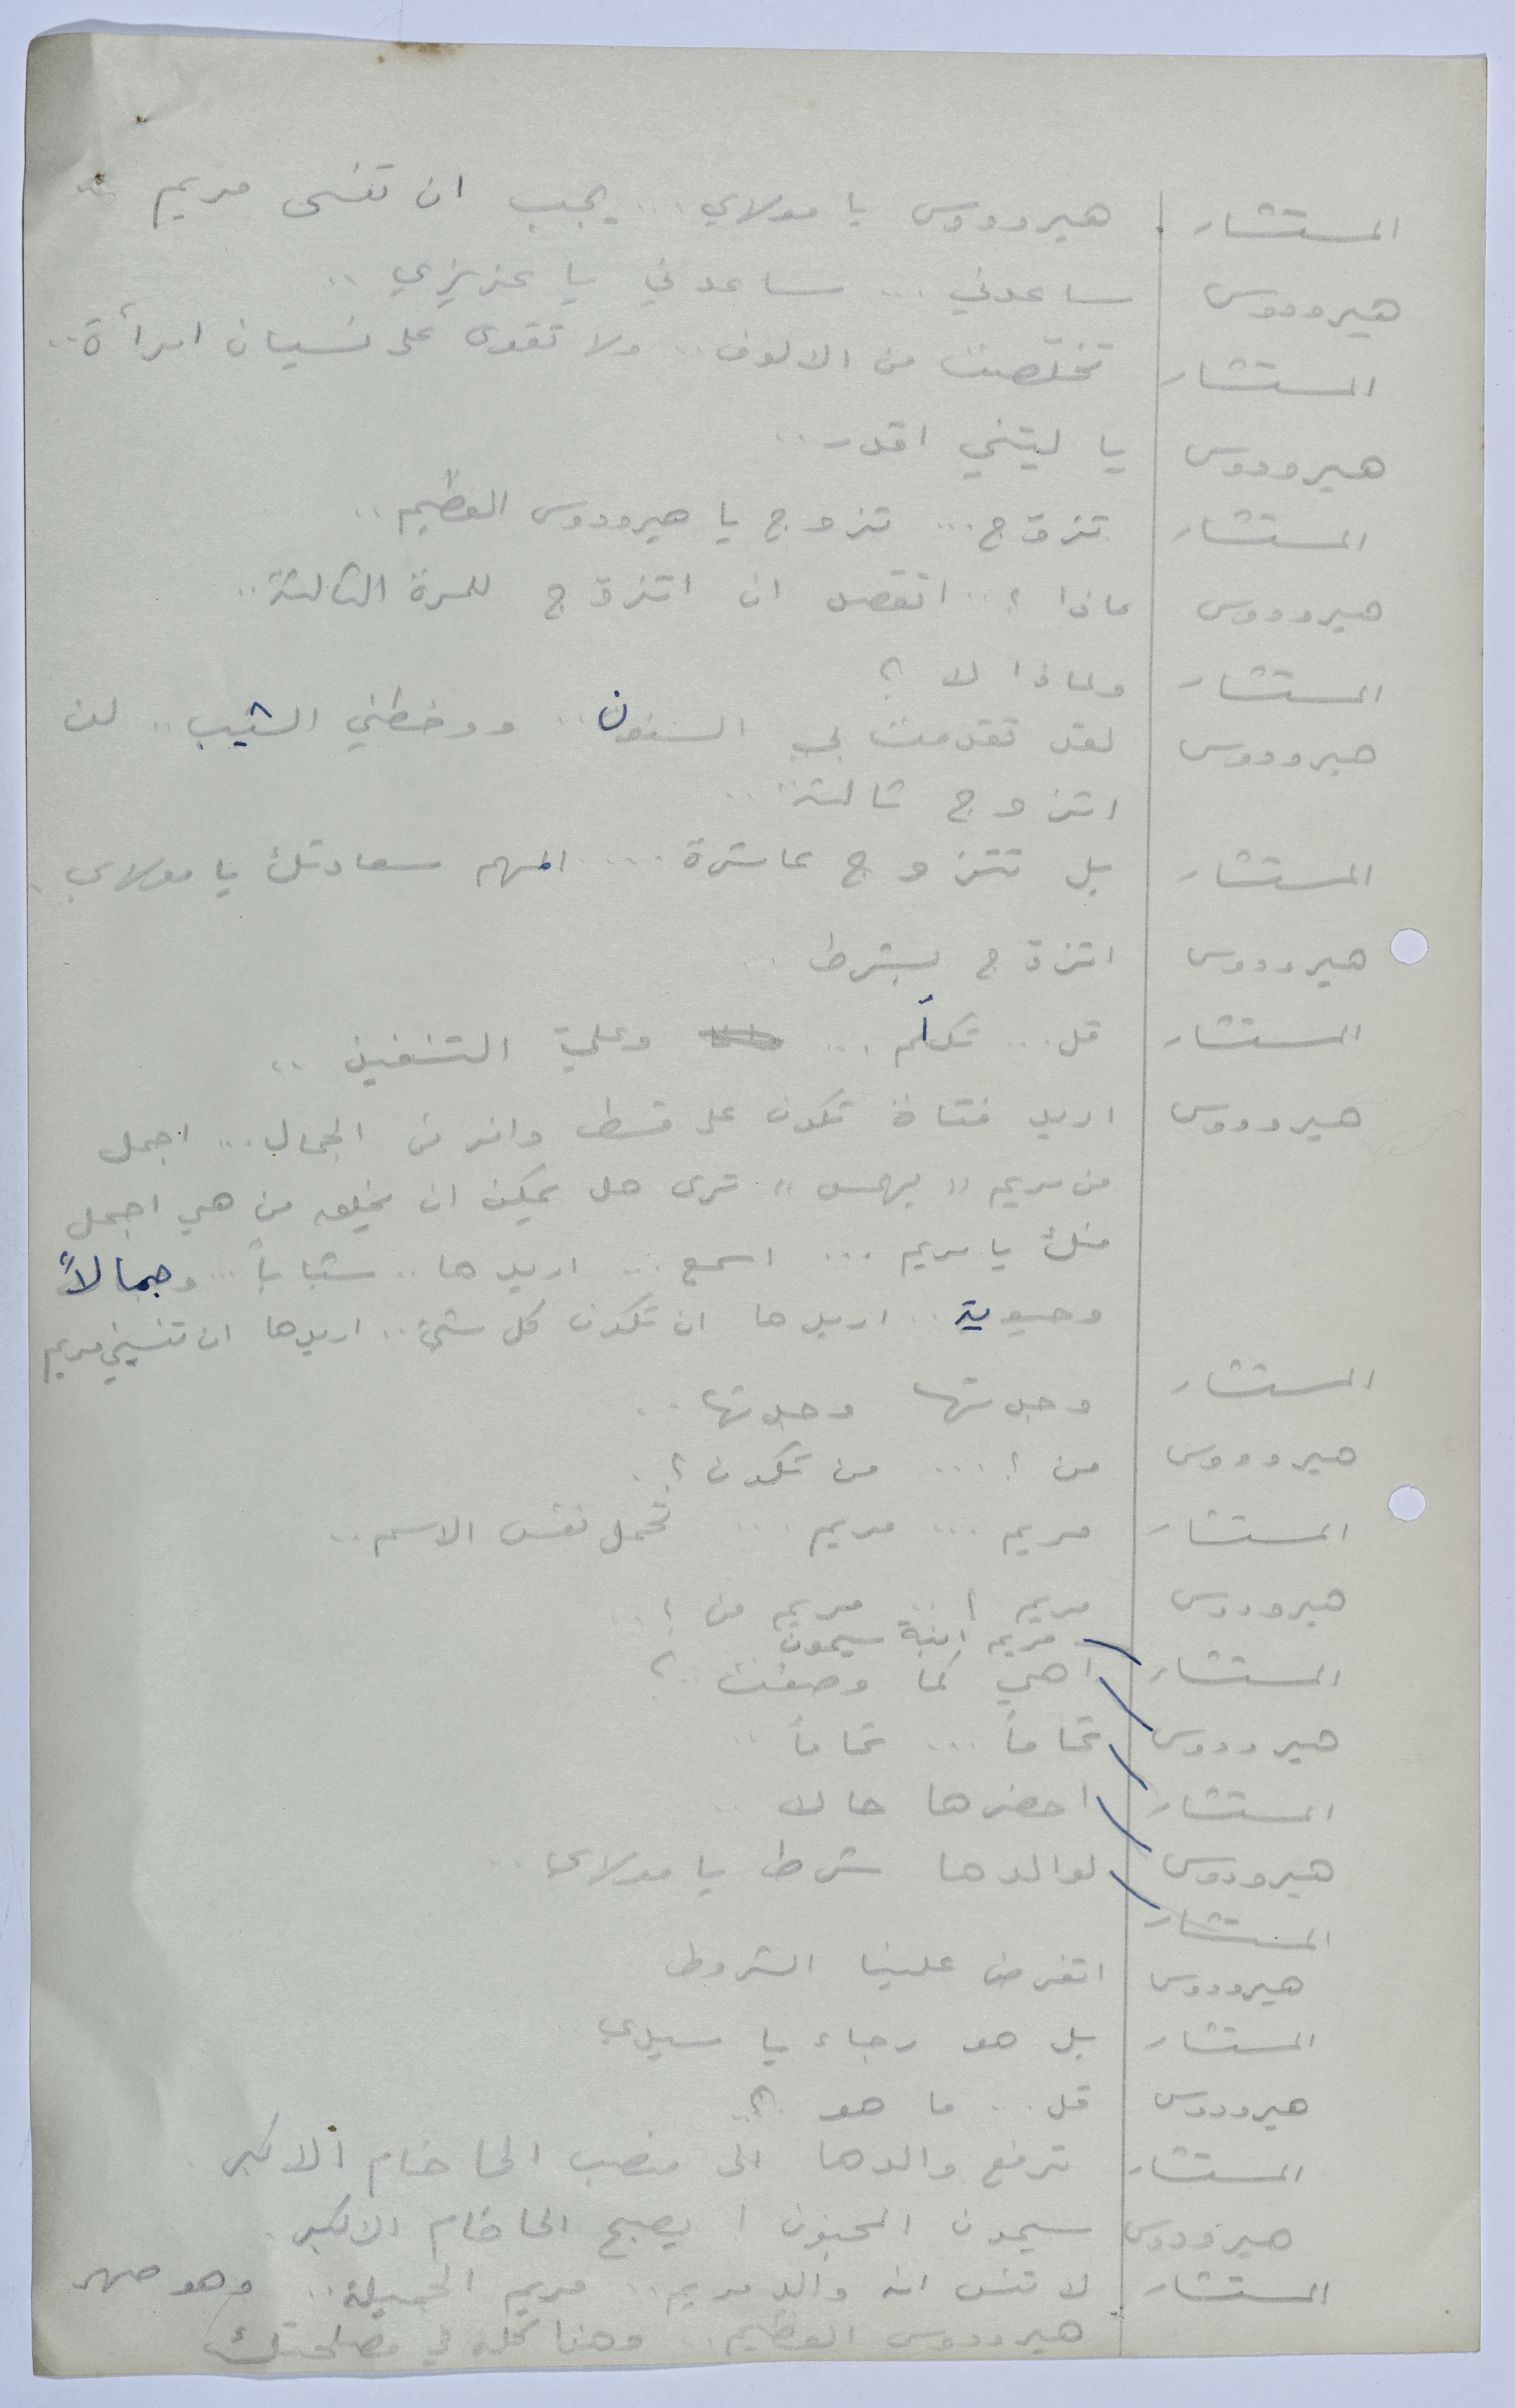 المستشار هيرودوس يا مولاي... يجب ان تنسى مريم
هيرودوس ساعدني... ساعدني يا عزيزي..
المستشار تخلصت من الالوف.. ولا تقوى على نسيان امرأة..
هيرودوس يا ليتني اقدر..
المستشار تزوّج... تزوج يا هيرودوس العظيم..
هيرودوس ماذا ؟.. اتقصد ان اتزوّج للمرة الثالثة..
المستشار ولماذا لا ؟
هيرودوس لقد تقدمت بي السنون.. ووخطني الشيب.. لن
اتزوج ثالثة..
المستشار بل تتزوج عاشرة.... المهم سعادتك يا مولاي.
هيرودوس اتزوّج بشرط..
المستشار قل... تكلم... وعليّ التنفيذ..
هيرودوس اريد فتاة تكون على قسط وافر من الجمال... اجمل
من مريم "يهمس" ترى هل يمكن ان يخلق من هي اجمل
منك يا مريم... اسمع... اريدها.. شباباً... وجمالاً
وحيوية.. اريدها ان تكون كل شيء.. اريدها ان تنسيني مريم
المستشار وجدتها وجدتها..
هيرودوس من ؟... من تكون ؟.
المستشار مريم... مريم.... تحمل نفس الاسم..
هيرودوس مريم ؟.. مريم من ؟..
مريم ابنة سيمون
المستشار اهي كما وصفت..؟
هيرودوس تماماً... تماماً..
المستشار احضرها حالا..
هيرودوس لوالدها شرط يا مولاي..
المستشار
هيرودوس اتفرض علينا الشروط
المستشار بل هو رجاء يا سيدي..
هيرودوس قل... ما هو ؟.
المستشار ترفع والدها الى منصب الحاخام الاكبر.
هيرودوس سيمون المجنون ! يصبح الحاخام الاكبر.
المستشار لا تنس انه والد مريم.. مريم الجميلة.. وهو صهر
هيرودوس العظيم.. وهذا كله في مصلحتك